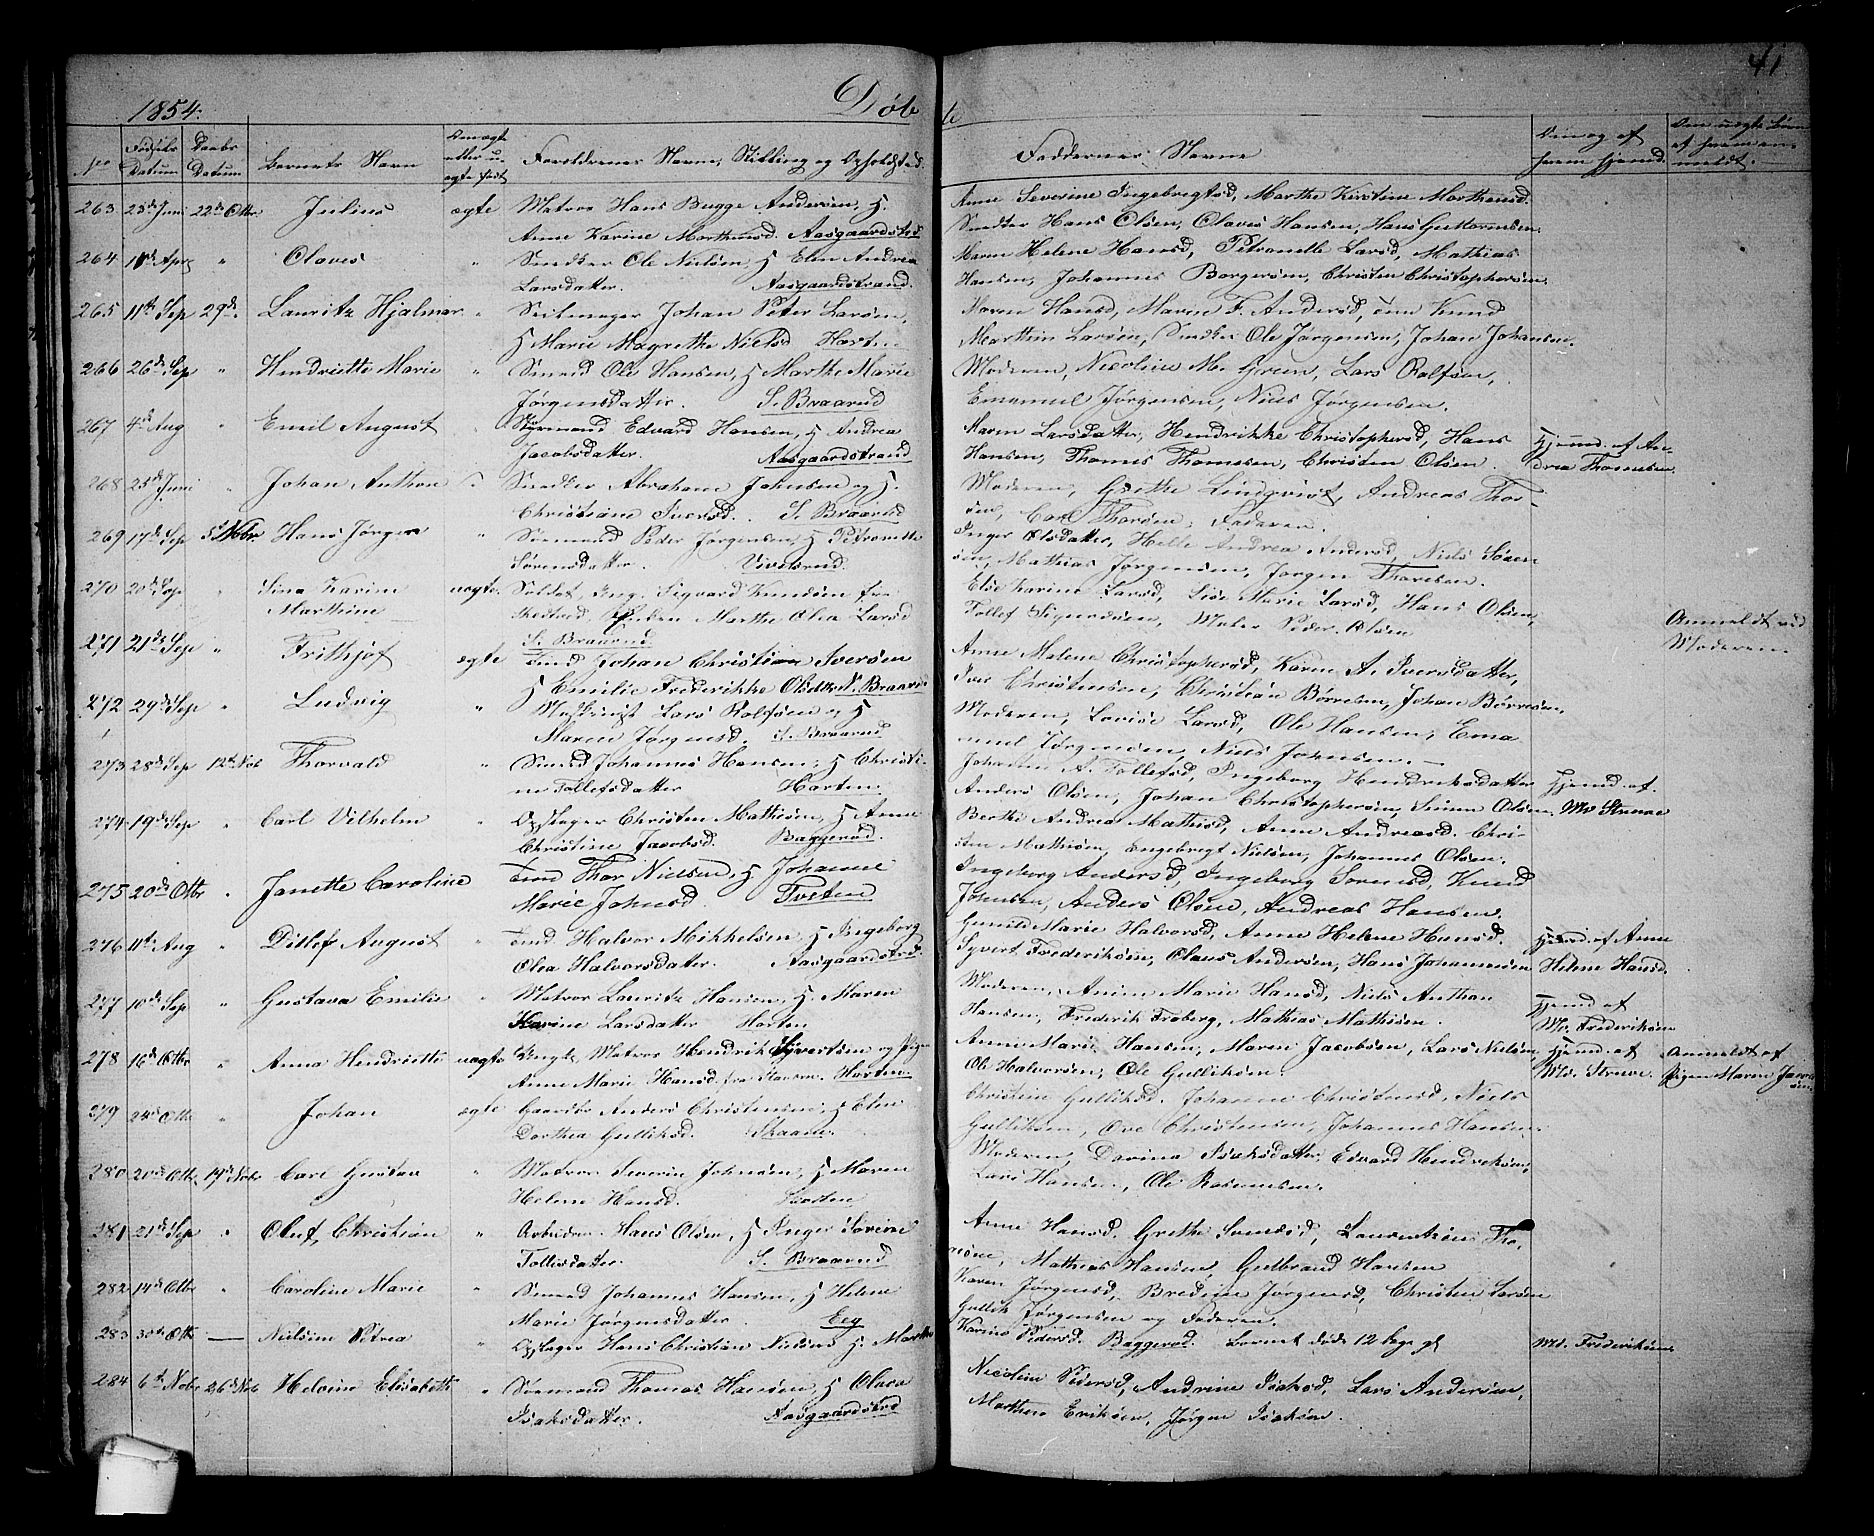 41
1854.
Døbte
No
Fødsels Datum
Daabs Datum
Barnets Navn
Om ægte eller uægte født
Forældrenes Navne, Stilling og Opholdsted.
Faddernes Navne
Om og af hvem hjemd.
Om uægte Børn af hvem anmeldt.
263 23de Juni 22de Otbr Julius ægte Matros Hans Bugge Andersen, H
Anne Karine Marthinsd. Aasgaardstrd.
Anne Severine Ingebregtsd, Marthe Kirstine Marthinsd.
Snedker Hans Olsen, Olaves Hansen, Hans Guttormsen.
264 Apr " Olaves " Snedker Ole Nielsen, H Elen Andrea
Larsdatter. Aasgaardstrand.
Maren Helene Hansd, Petronelle Larsd, Mathias
Hansen, Johannes Borgersen, Christen Christophersen.
265 11te Sep 29de Lauritz Hjalmar " Seilmager Johan Peter Larsen,
H Marie Magrethe Nielsd Horten
Maren Hansd, Maren F. Andersd, Knud
Marthin Larsen, Snedker Ole Jørgensen, Johan Johansen.
266 26de Sep " Hendriette Marie " Smed Ole Hansen, H Marthe Marie
Jørgensdatter. S. Braarud
Moderen, Nicoline M. Green, Lars Rolfsen,
Emanuel Jørgensen, Niels Jørgensen.
267 4de Aug " Emil August " Styrmand Edvard Hansen, H Andrea
Jacobsdatter. Aasgaardstrand
Maren Larsdatter, Hendrikke Christophersd, Hans
Hansen, Thomes Thomesen, Christen Olsen.
Hjemd. af Andrea Thomesen
268 25de Juni " Johan Anthon " Snedker Abraham Johnsen og H.
Christiane Iversd. S. Braarud
Moderen, Grethe Lindqvist, Andreas Thorsen,
Carl Thorsen, Faderen.
269 17de Sep 5te Nobr. Hans Jørgen " Sømand Peder Jørgensen, H Petronette
Sørensdatter. Vivelsrud.
Inger Olsdatter, Helle Andrea Andersd, Niels Sørensen,
Mathias Jørgensen, Jørgen Thoresen.
270 20de Sep " Sina Karine
Marthine uægte. Soldat, Ung. Sigvard Knudsen fra
Marthe Olea Larsd
S. Braarud
Else Karine Larsd, Lise Marie Larsd, Hans Olsen,
Tollef Sigurdsen, Peder Olsen
Anmeldt ved
Moderen.
271 21de Sep " Frithjof ægte Tmd Johan Christian Iversen
H Emilie Frederikke Olsdtr N. Braarud
Anne Malene Christophersd, Karen A. Iversdatter,
Iver Christensen, Christian Børresen, Johan Børresen,
272 29de Sep " Ludvig " Lars Rolfsen og H
Maren Jørgensd. S. Braarud
Moderen, Lovise Larsd, Ole Hansen, Emanuel
Jørgensen, Niels Johnsen.
273 28de Sep 12te Nob Thorvald " Smed Johannes Hansen, H Christine
Tollefsdatter Horten.
Johanne A. Tollefsd, Ingeborg Hendriksdatter
Anders Olsen, Johan Christophersen, Simen Olsen.
Hjemd. af
Md. Strene
274 19de Sep " Carl Vilhelm " Opslager Christen Mathisen, H Anne
Christine Jacobsd. Baggerød.
Berthe Andrea Mathisd, Anne Andreasd. Christen
Mathisen, Engebregt Nielsen, Johannes Olsen.
275 20de Otbr " Janette Caroline Tmd Thor Nielsen, H Johanne
Marie Johnsd. Tveten
Ingeborg Andersd, Ingeborg Sørensd, Knud
Johnsen, Anders Olsen, Andreas Hansen.
276 11te Aug " Ditlef August " Tmd Halvor Mikkelsen, H Ingeborg
Olea Halvorsdatter. Aasgaardstrd.
Gunild Marie Halvorsd, Anne Helene Hansd.
Syvert Frederiksen, Olaus Andersen, Hans Johannesen
Hjemd. af Anne
Helene Hansd.
277 10de Sep " Gustava Emilie " Matros Lauritz Hansen, H Maren
Karine Larsdatter Horten
Moderen, Anine Marie Hansd, Niels Anthon
Hansen, Frederik Froberg, Mathias Mathisen.
Hjemd af
Md. Frederiksen
278 16de Otbr " Anna Hendriette uægte Ungk. Matros Hendrik Syvertsen og Pigen
Anne Marie Hansd. fra Horten.
Anne Marie Hansen, Maren Jacobsen, Lars Nielsen,
Ole Halvorsen, Ole Gulliksen.
Hjemd. af
Md. Strene.
Anmeldt af
Pigen Maren Jacobsen.
279 24de Otbr " Johan ægte Gaardbr Anders Christensen, H Elen
Dorthea Gulliksd. Skaane.
Christine Gulliksd. Johanne Christensd, Niels
Gulliksen, Ove Christensen, Johannes Hansen.
280 20de Otbr. 19de Nobr Carl Gustav " Matros Severin Johnsen, H Maren
Helene Hansd. Horten
Moderen, Dorina Isaksdatter, Edvard Hendriksen,
Lars Hansen, Ole Rasmusen.
281 21de Sep " Oluf Christian " Arbeider Hans Olsen, H Inger Sorine
Tollefsdatter. S. Braarud
Anne Hansd. Grethe Svendsd, Laurentius Thoresen,
Mathias Hansen, Gulbrand Hansen
282 14de Otbr " Caroline Marie " Smed Johannes Hansen, H Helene
Marie Jørgensdatter. Eeg
Karen Jørgensd, Bredine Jørgensd, Christen Larsen
Gullik Jørgensen og Faderen.
283 30te Otbr — Nielsine Petrea " Opslager Hans Christian Nielsen H. Marthe
Karine Pedersd. Baggerød. Barnet døde 12 Dage gl
Md. Frederiksens
284 6te Nobr 26de Nob Helvine Elisabeth " Sømand Thomas Hansen, H Olava
Isaksdatter. Aasgaardstrd
Nicoline Pedersd, Andrine Isaksd, Lars Andersen,
Marthin Eriksen, Jørgen Isaksen.